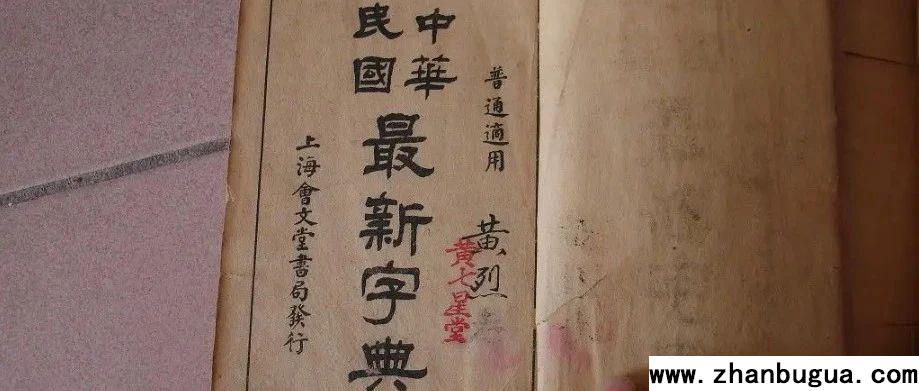 普通適用
中華
民國
最新字典
上海會文堂書局發行
黃烈
黃七星堂
www.zhanbugua.com